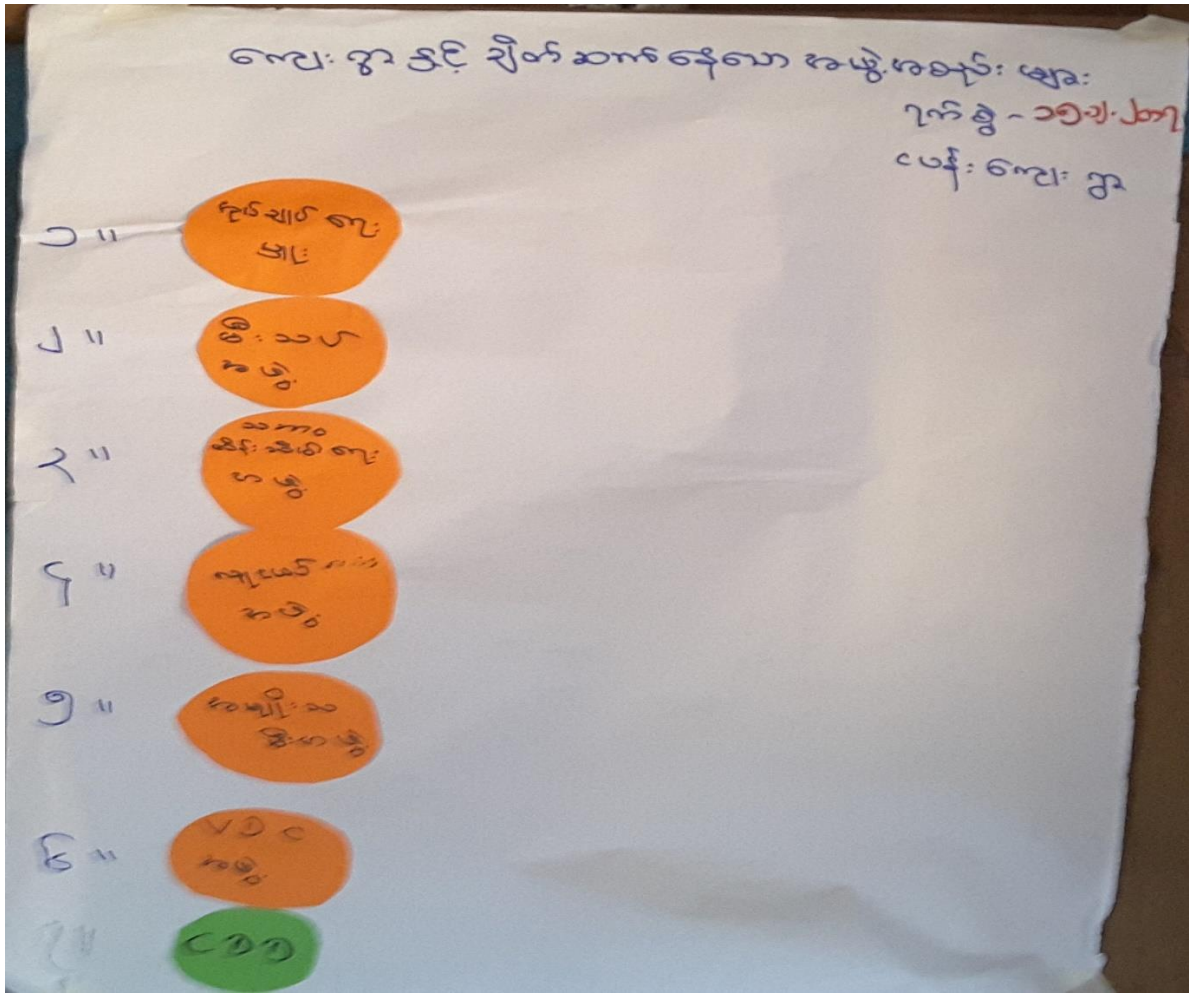 ကျေးရွာနှင့် ချိတ်ဆက်နေသော အဖွဲ့အစည်းများ
ရက်စွဲ -
ငပန်းကျေးရွာ
၁။ အုပ်ချုပ်ရေးမှူး
၂။ မီးသတ်
အဖွဲ့
၃။ သဘာဝ
ထိန်းသိမ်းရေး
အဖွဲ့
၄။ လူငယ်
အဖွဲ့
၅။ အမျိုးသ
မီးအဖွဲ့
၆။ VDC
အဖွဲ့
၇။ CDD